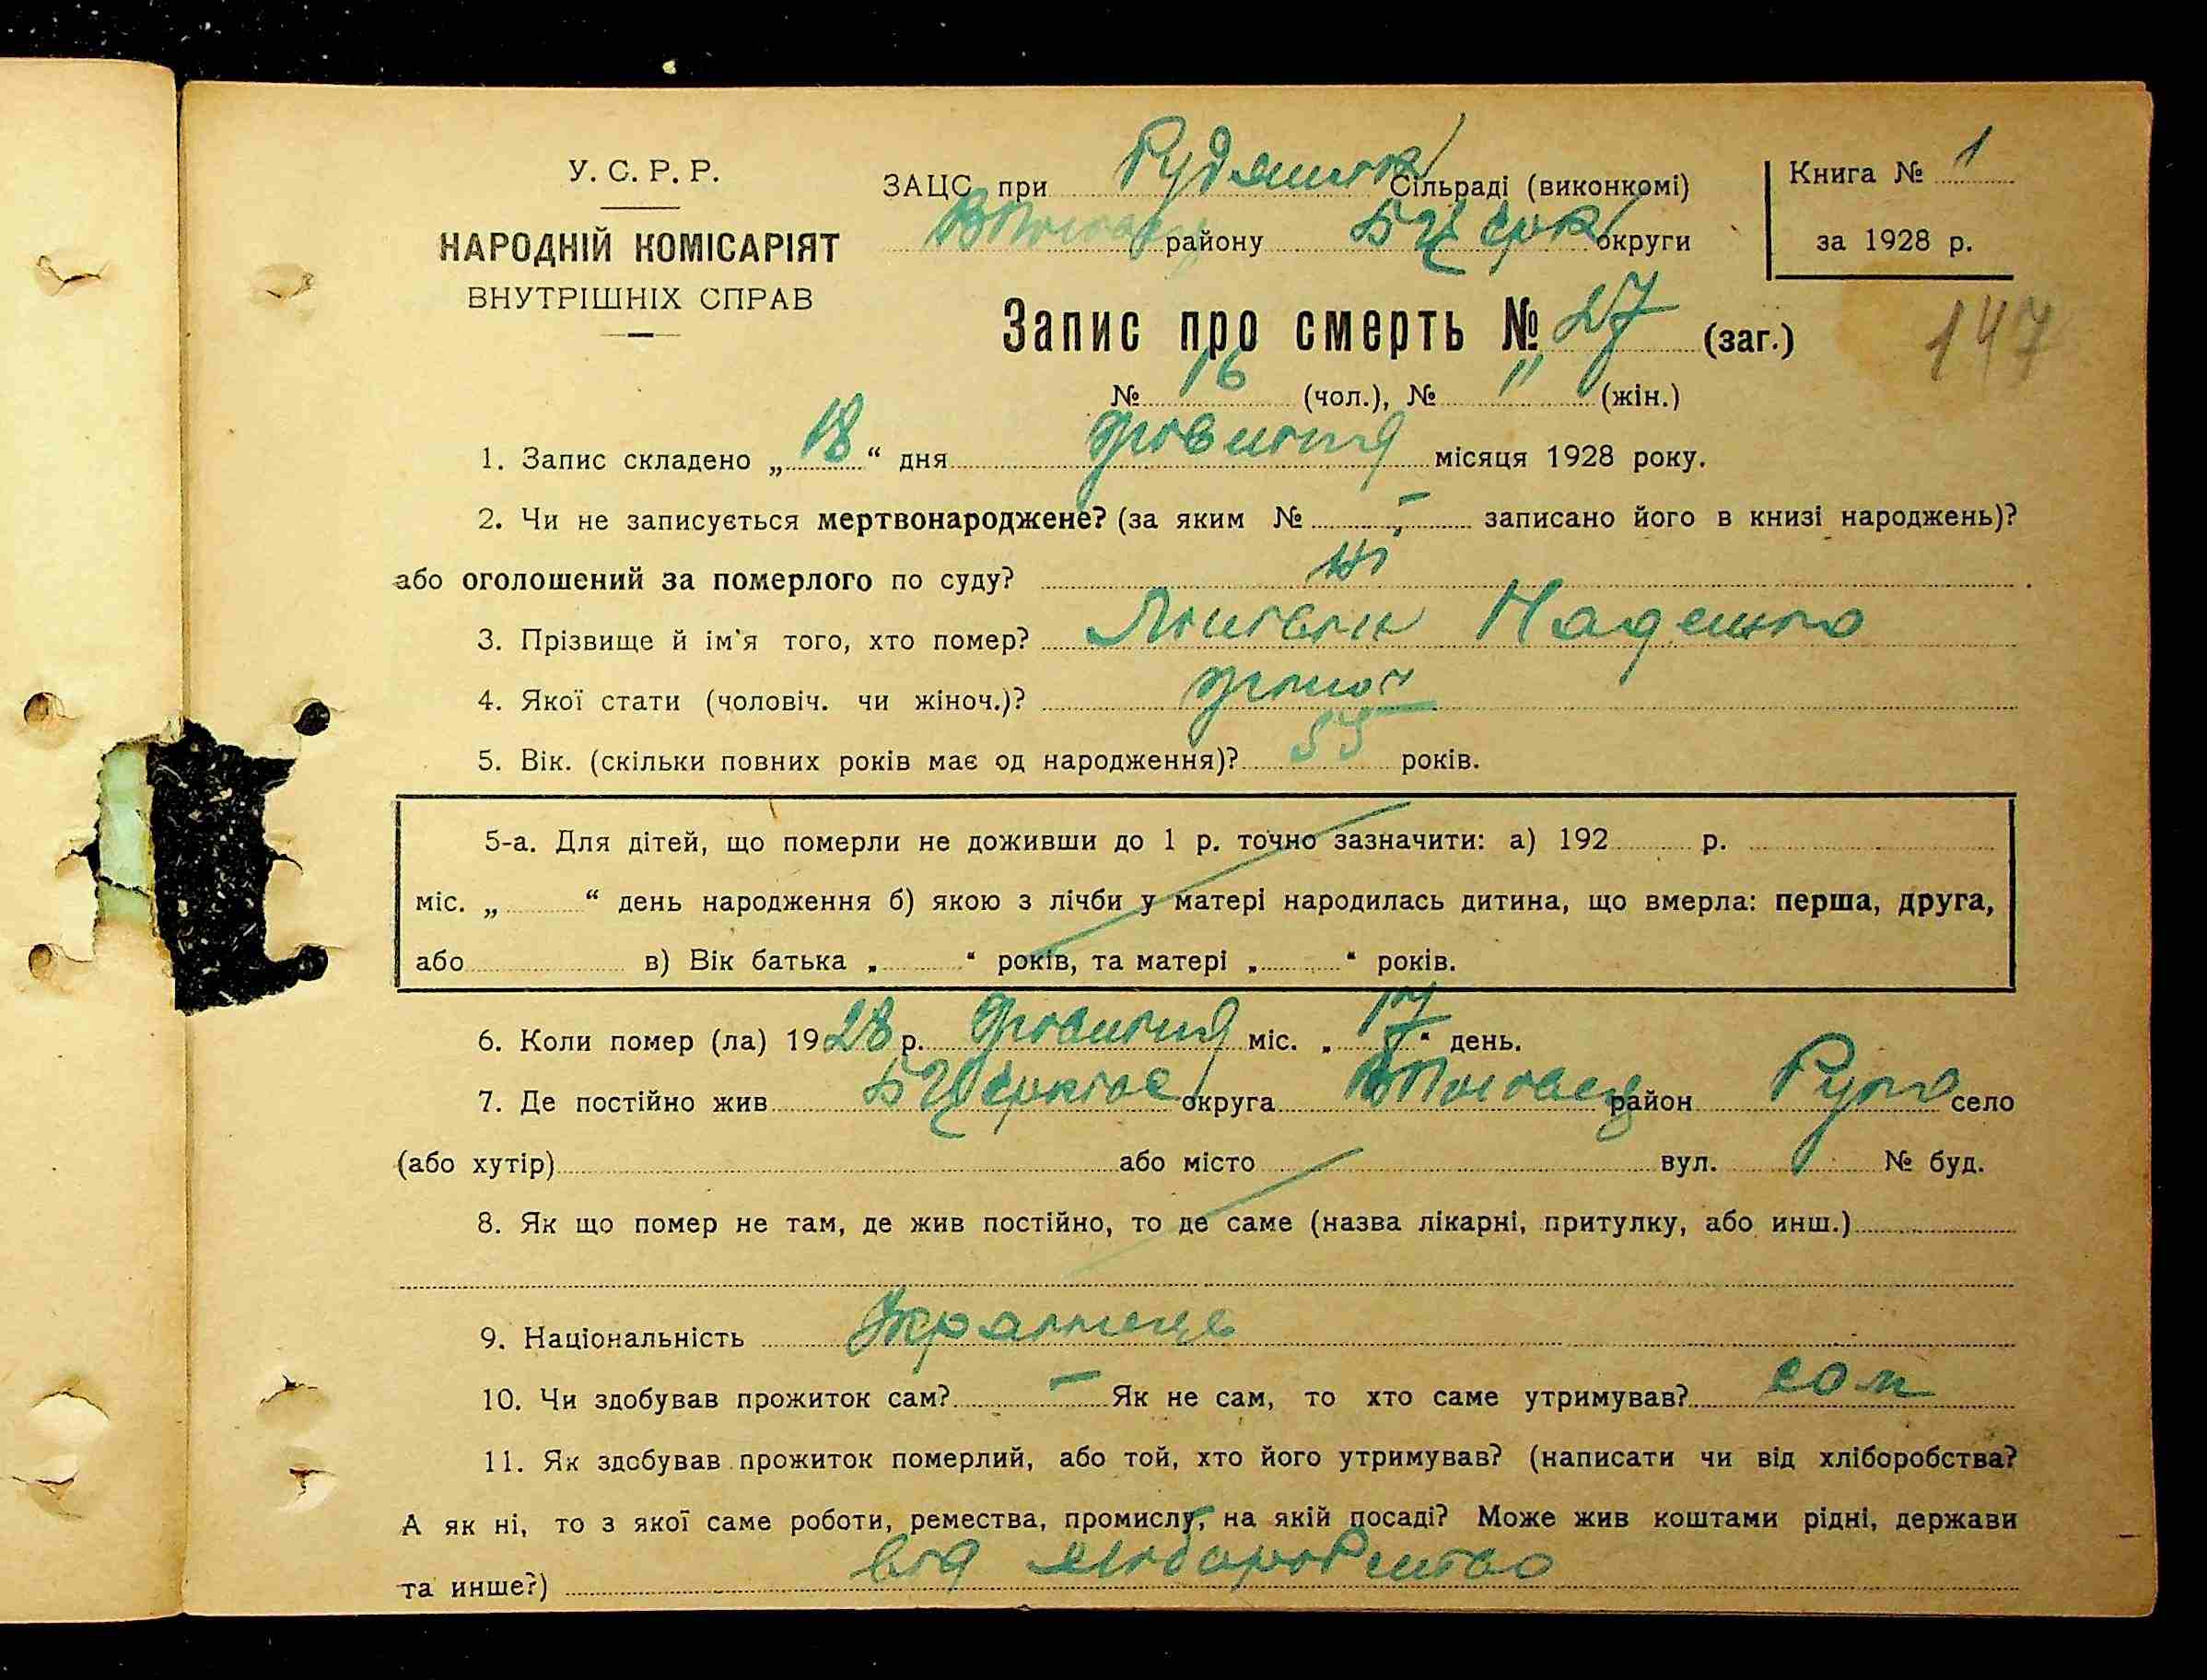 У. С. Р. Р.
НАРОДНІЙ КОМІСАРІЯТ
ВНУТРІШНІХ СПРАВ
ЗАЦС при Рудянськ Сільраді (виконкомі)
району БЦерк округи
Книга № 1
за 1928 р.
Запис про смерть № 27 (заг.)
147
№ 16 (чол.), № " (жін.)
1. Запис складено „ 18 “ дня жовтня місяця 1928 року.
2. Чи не записується мертвонароджене? (за яким № - записано його в книзі народжень)?
або оголошений за померлого по суду? ні
3. Прізвище й ім'я того, хто помер? Литвин
4. Якої стати (чоловіч. чи жіноч.)?
5. Вік. (скільки повних років має од народження)? 55 років.
5-а. Для дітей, що померли не доживши до 1 р. точно зазначити: а) 192 р.
міс. „ “ день народження б) якою з лічби у матері народилась дитина, що вмерла: перша, друга,
або в) Вік батька „ “ років, та матері „ “ років.
6. Коли помер (ла) 1928 р. жовтня міс. „ 17 “ день.
7. Де постійно жив БЦерківс округа район Руда село
(або хутір) або місто вул. № буд.
8. Як що помер не там, де жив постійно, то де саме (назва лікарні, притулку, або инш.)
9. Національність Українець
10. Чи здобував прожиток сам? - Як не сам, то хто саме утримував? сам
11. Як здобував прожиток померлий, або той, хто його утримував? (написати чи від хліборобства?
А як ні, то з якої саме роботи, ремества, промислу, на якій посаді? Може жив коштами рідні, держави
та инше?) від хліборобства